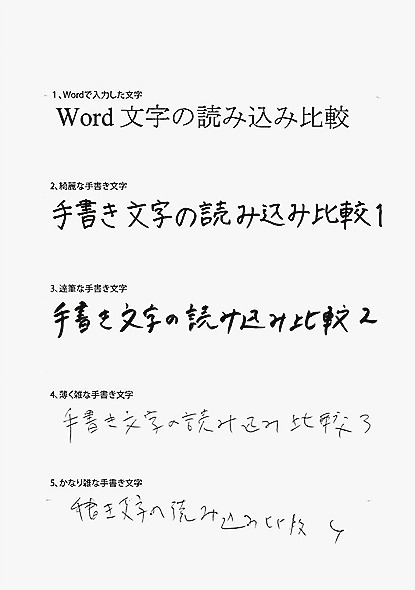 1、Wordで入力した文字
Word 文字の読み込み比較
2、綺麗な手書き文字
手書き文字の読み込み比較1
3、達筆な手書き文字
手書き文字の読み込み比較2
4、薄く雑な手書き文字
手書き文字の読み込み比較3
5、かなり雑な手書き文字
手書き文字の読み込み比較4